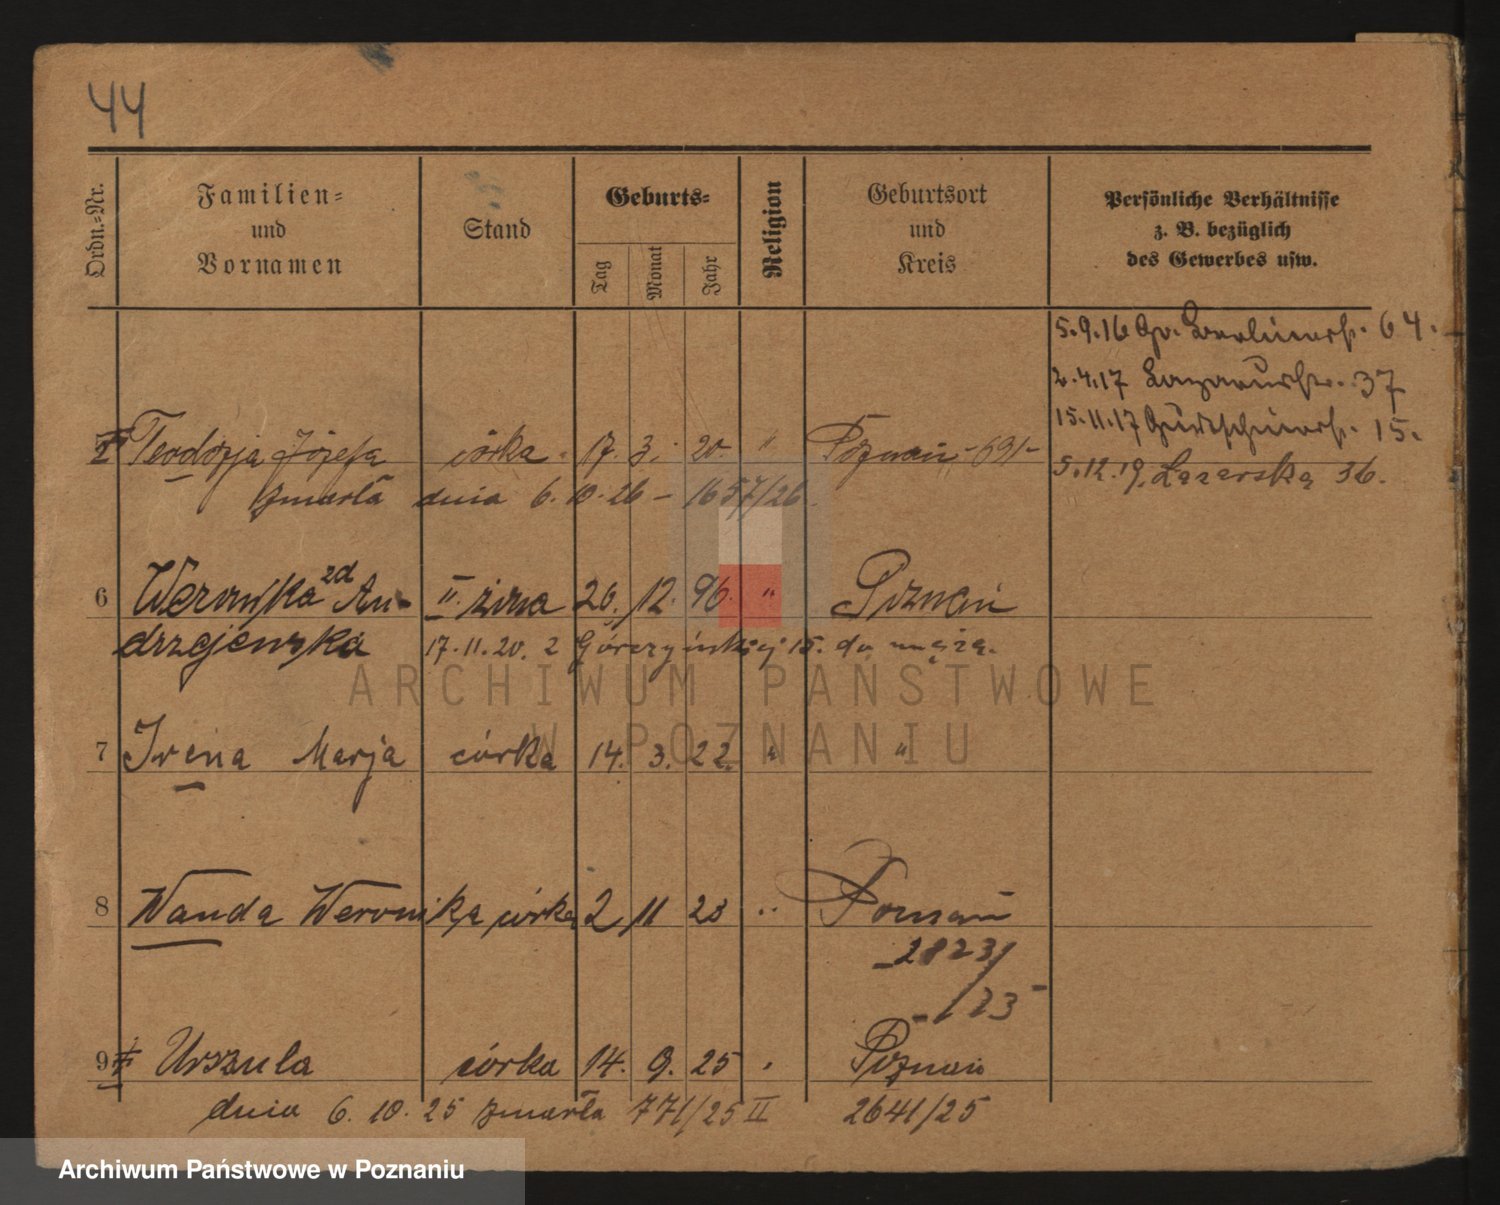 44
Ordn.=Nr.
Familien=
und
Vornamen
Stand
Geburts=
Tag
Monat
Jahr
Religion
Geburtsort
und
Kreis
Persönliche Verhältnisse
z. B. bezüglich
des Gewerbes usw.
5.9.16 64.
2.4.17 Lazarusstr. 37
15.11.17 15.
5.12.19. Lazarska 36.
Teodozja Józefa córka 17. 3. 20. " Poznań -691-
zmarła dnia 6.10.26 - 1657/26.
6 Weronika zd An-
II. żona 26. 12. 96. " Poznań
drzejewska 17.11.20. z Górczyńskiej 15. do męża.
7 Irena Marja córka 14. 3. 22. " "
8 Wanda Weronika córka 2 11 23 " Poznań
2823/
/23
9 Urszula córka 14. 9. 25 " Poznań
dnia 6. 10. 25 zmarła 771/25 II 2641/25
ARCHIWUM PAŃSTWOWE
W POZNANIU
Archiwum Państwowe w Poznaniu